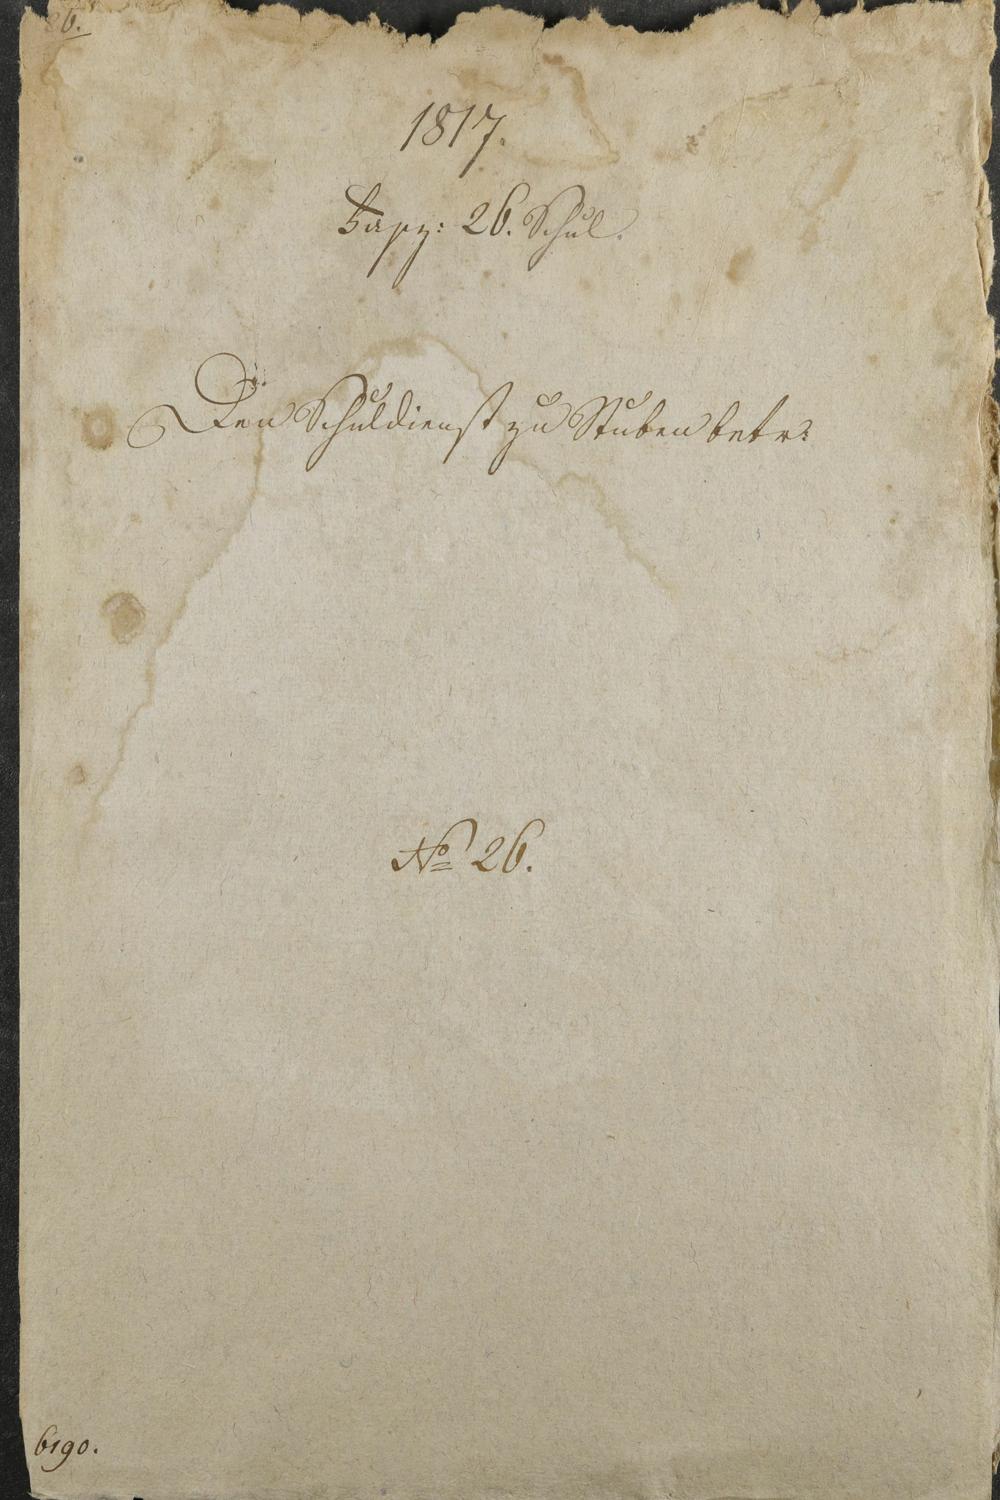 26.
1817.
Fasz: 26. Schul.
Den Schuldienst zu Stuben betr:
No 26.
6190.